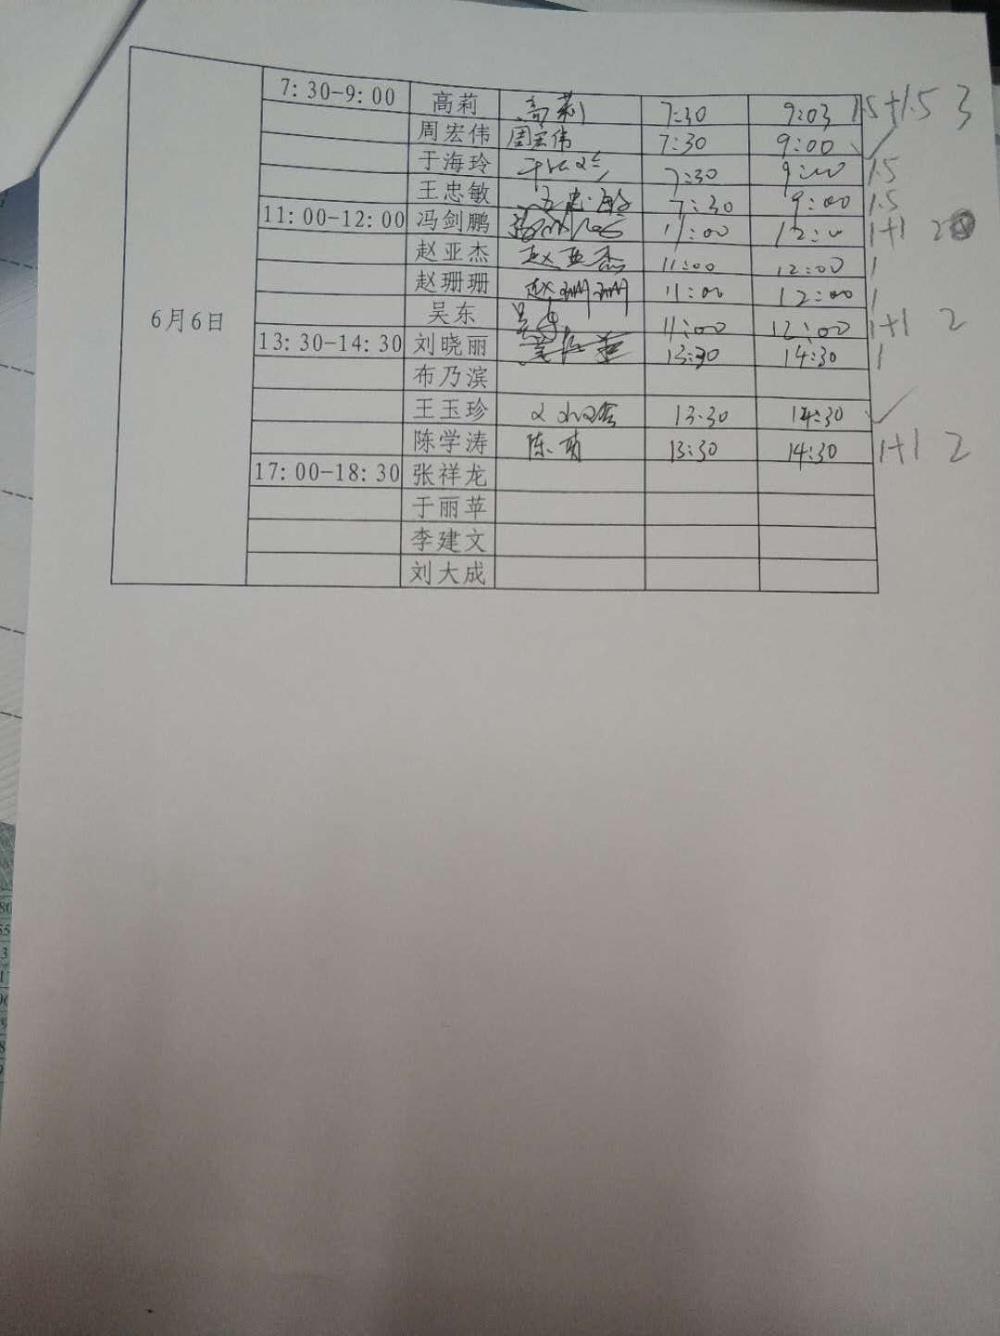 7:30-9:00 高莉 高莉 7:30 9:03 1.5+1.5 3
周宏伟 周宏伟 7:30 9:00 ✓
于海玲 7:30 9:00 1.5
王忠敏 王忠敏 7:30 9:00 1.5
11:00-12:00 冯剑鹏 11:00 12:00 1+1 2
赵亚杰 赵亚杰 11:00 12:00 1
赵珊珊 赵珊珊 11:00 12:00 1
6月6日
吴东 吴东 11:00 12:00 1+1 2
13:30-14:30 刘晓丽 13:30 14:30 1
布乃滨
王玉珍 13:30 14:30 ✓
陈学涛 13:30 14:30 1+1 2
17:00-18:30 张祥龙
于丽苹
李建文
刘大成